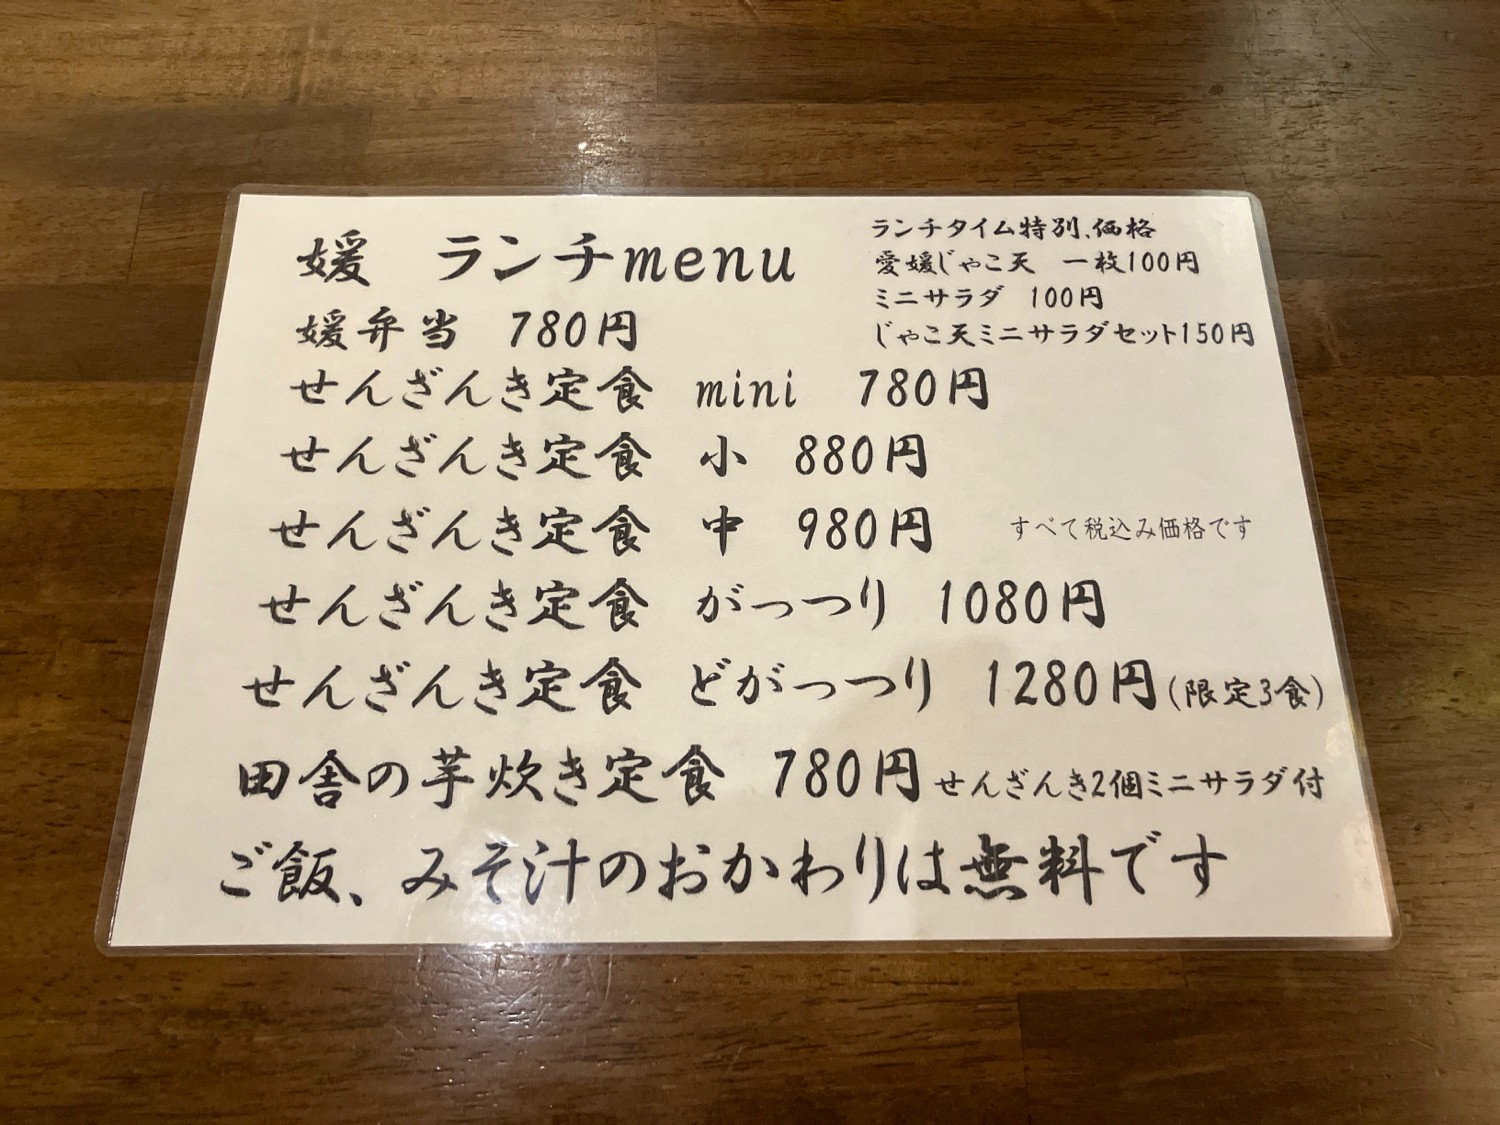 媛 ランチmenu
ランチタイム特別、価格
愛媛じゃこ天 一枚100円
ミニサラダ 100円
じゃこ天ミニサラダセット150円
媛弁当 780円
せんざんき定食 mini 780円
せんざんき定食 小 880円
せんざんき定食 中 980円
すべて税込み価格です
せんざんき定食 がっつり 1080円
せんざんき定食 どがっつり 1280円(限定3食)
田舎の芋炊き定食 780円 せんざんき2個ミニサラダ付
ご飯、みそ汁のおかわりは無料です